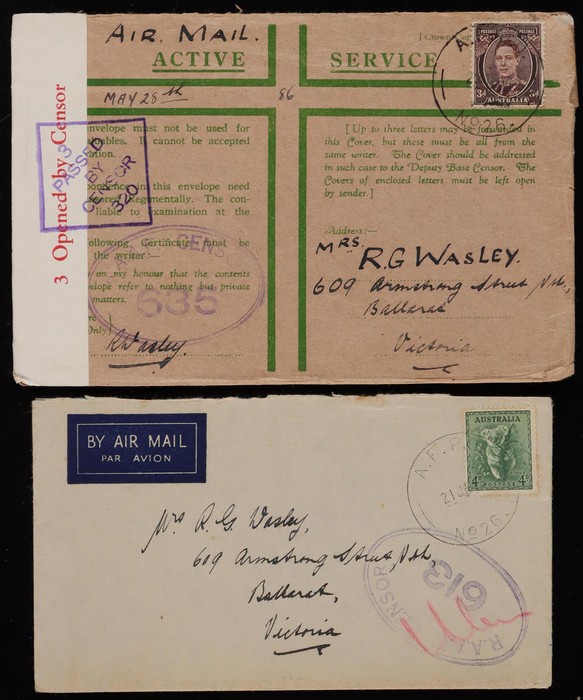 AIR. MAIL.
ACTIVE SERVICE
[Crown
POSTAGE
3d 3d
AUSTRALIA
A.
No 26.
MAY 28th
86
3 Opened by Censor
3
PASSED
BY
CENSOR
320
envelope must not be used for
It cannot be accepted
in this envelope need
Regimentally. The con-
liable to examination at the
ollowing Certificate must be
the writer:—
on my honour that the contents
velope refer to nothing but private
matters.
Only]
CENS
635
R Wasley.
[Up to three letters may be forwarded in
this Cover, but these must be all from the
same writer. The Cover should be addressed
in such case to the Deputy Base Censor. The
Covers of enclosed letters must be left open
by sender.]
Address:—
MRS. R.G WASLEY.
609 Armstrong Street Nth.
Ballarat
Victoria
BY AIR MAIL
PAR AVION
AUSTRALIA
4d 4d
POSTAGE
A.F.P.
21 J
No 26.
Mrs R. G. Wasley,
609 Armstrong Street, Nth,
Ballarat,
Victoria
R.A.A
NSOR
613